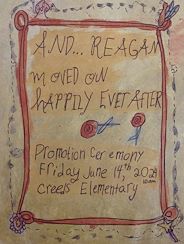 AND... REAGAN
MOVED ON
HAPPILY EVER AFTER
Promotion Ceremony
Friday June 14th 2024
Creeds Elementary